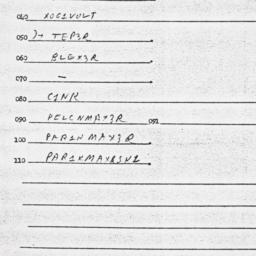 040 XOC1VOLT
050 )→ TEP3R
060 BLGX3R
070 —
080 C1NK
090 PELCNMAX3R 091
100 PAR1NMAX3R
110 PAR1XMAXRSN1